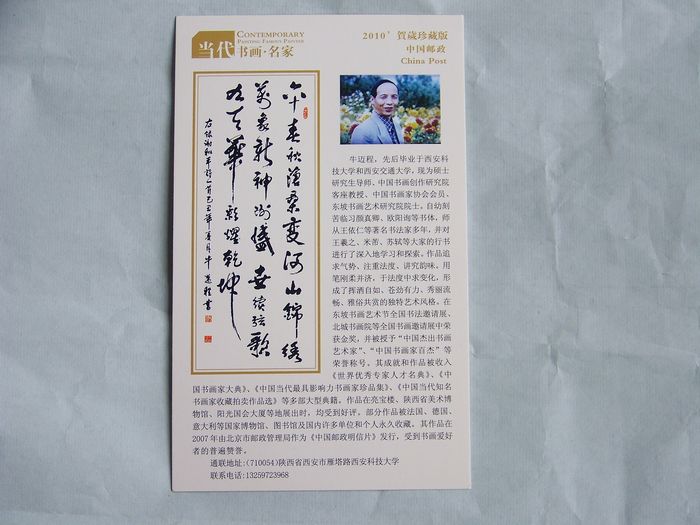 当代
CONTEMPORARY
PAINTING FAMOUS PAINTER
书画·名家
2010' 賀歲珍藏版
中国邮政
China Post
六十春秋滄桑變河山錦綉
萬象新神州盛世續弦歌
天華彩耀乾坤
牛邁程書
牛迈程,先后毕业于西安科
技大学和西安交通大学,现为硕士
研究生导师、中国书画创作研究院
客座教授、中国书画家协会会员、
东坡书画艺术研究院院士。自幼刻
苦临习颜真卿、欧阳询等书体,师
从王依仁等著名书法家多年,并对
王羲之、米芾、苏轼等大家的行书
进行了深入地学习和探索。作品追
求气势、注重法度、讲究韵味、用
笔刚柔并济,于法度中求变化,形
成了挥洒自如、苍劲有力、秀丽流
畅、雅俗共赏的独特艺术风格。在
东坡书画艺术节全国书法邀请展、
北城书画院等全国书画邀请展中荣
获金奖,并被授予“中国杰出书画
艺术家”、“中国书画家百杰”等
荣誉称号。其成就和作品被收入
《世界优秀专家人才名典》、《中
国书画家大典》、《中国当代最具影响力书画家珍品集》、《中国当代知名
书画家收藏拍卖作品选》等多部大型典籍。作品在亮宝楼、陕西省美术博
物馆、阳光国会大厦等地展出时,均受到好评。部分作品被法国、德国、
意大利等国家博物馆、图书馆及国内许多单位和个人永久收藏。其作品在
2007年由北京市邮政管理局作为《中国邮政明信片》发行,受到书画爱好
者的普遍赞誉。
通联地址:(710054)陕西省西安市雁塔路西安科技大学
联系电话:13259723968